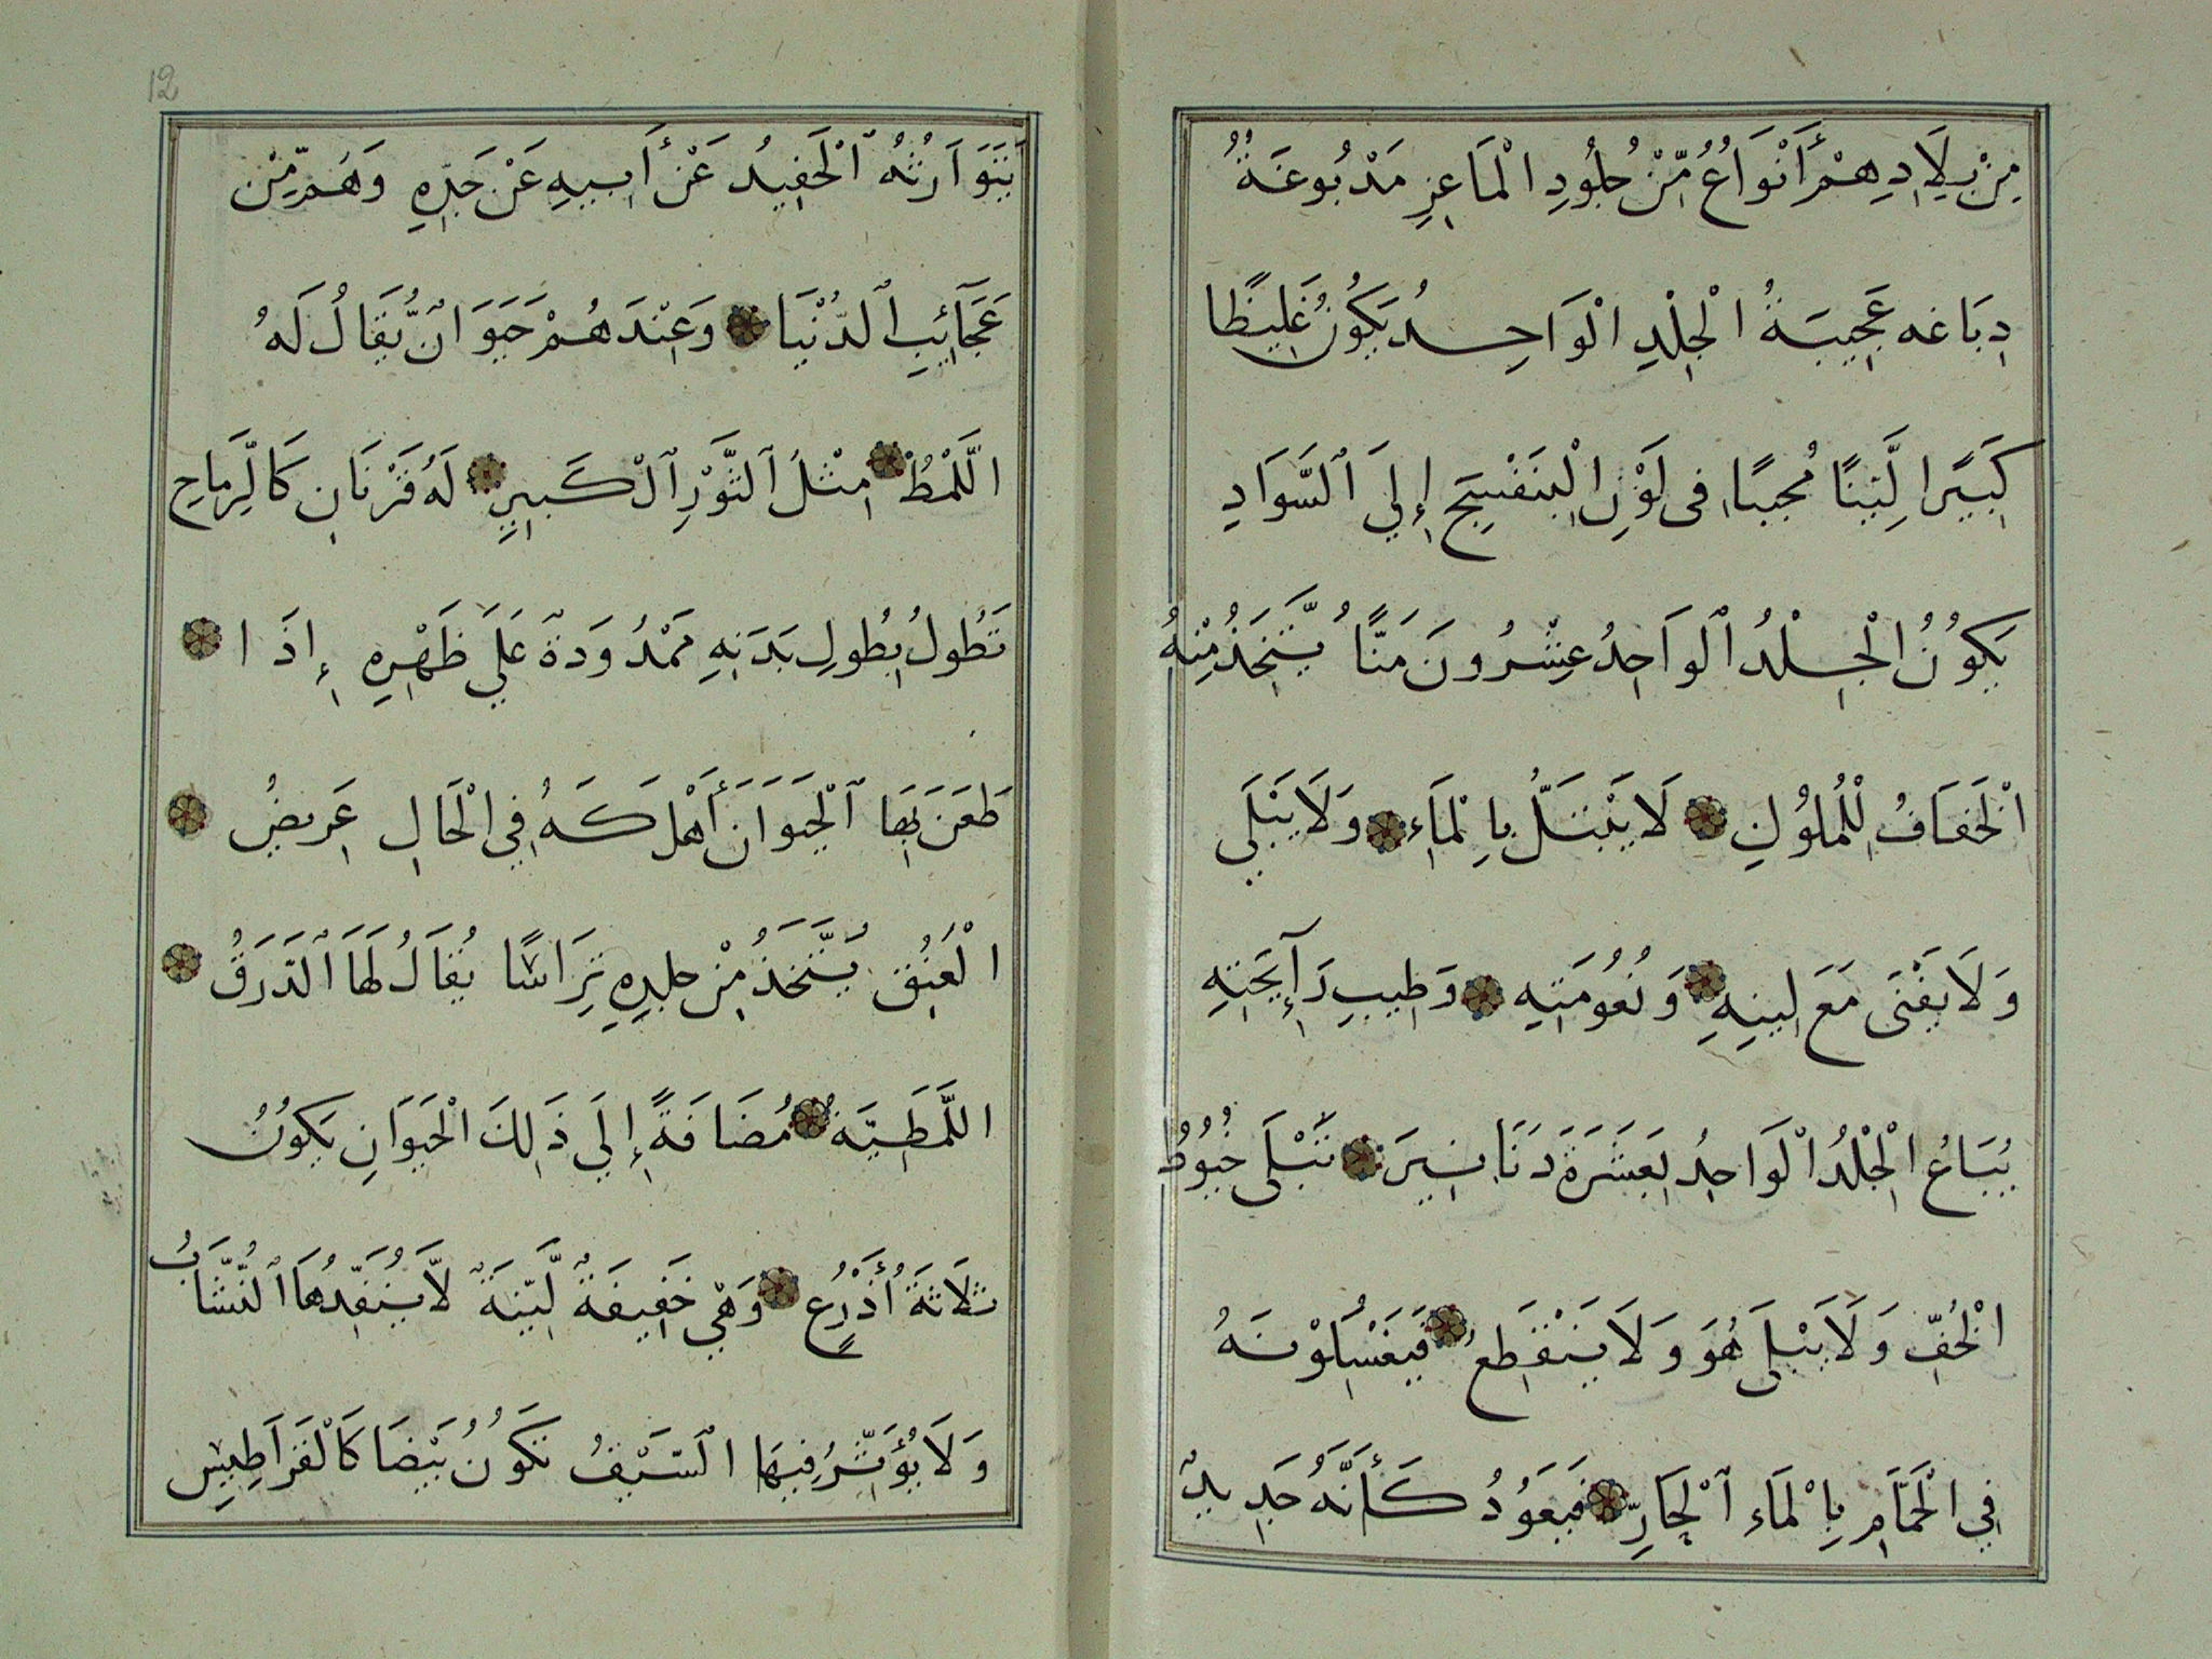 مِنْ بِلَادِهِمْ أَنْوَاعُ مِّنْ جُلُودِ الْمَاعِزِ مَدْبُوغَةُ
دِبَاغه عَجِيبَةُ الْجِلْدِ الْوَاحِدُ يَكُونُ غَلِيظًا
كَبِيَرًا لَيِّنًا مُحِبِبًا فى لَوْنِ الْبَنَفْسِجِ إِلَي ٱلسَّوَادِ
يَكُونُ الْجِلْدُ ٱلْوَاحِدُ عِشْرُونَ مَنًّا يُتَّخَذُ مِنْهُ
اْلْخَفَافُ لِلْمُلُوُكِ لَا يَبْتَلُّ بِالْمَاءِ وَلَا يَبْلَي
وَلَا يَفْنَى مَعَ لِينِهِ وَنُعُومَتِهِ وَطِيبِ رَآئِحَتِهِ
يُبَاعُ الْجِلْدُ الْوَاحِدُ بِعَشَرَةَ دَنَانِيرَ تَبْلَى خُيُوُطُ
اْلْخُفِّ وَلَا يَبْلَى هُوَ وَلَا يَنْقَطِعُ فَيَغْسِلُوْنَهُ
فِي الْحَمَّامِ بِالْمَاءِ ٱلْحَارِّ فَيَعُوُدُ كَأَنَّهُ جَدِيدٌ
12
يَتَوَارَثُهُ ٱلْحَفِيدُ عَنْ أَبِيهِ عَنْ جَدِّهِ وَهُمْ مِّنْ
عَجَآئِبِ ٱلدُّنْيَا وَعِنْدَهُمْ حَيَوَانٌ يُّقَالُ لَهُ
اللَّمْطُ مِثْلُ ٱلثَّوْرِ ٱلْكَبِيرِ لَهُ قَرْنَانِ كَالرِّمَاحِ
تَطُولُ بِطُولِ بَدَنِهِ مَمْدُودَةٌ عَلَي ظَهْرِهِ إِذَا
طَعَنَ بِهَا ٱلْحَيَوَانَ أَهْلَكَهُ فِي الْحَالِ عَرِيضُ
الْعُنُقِ يُتَّخَذُ مِنْ جِلْدِهِ تِرَاسًا يُقَالُ لَهَا ٱلدَّرَقُ
اللَّمَطِيَّةُ مُضَافَةً إِلَي ذَلِكَ الْحَيَوَانِ يَكُوُنُ
ثَلَاثَةَ أَذْرُعٍ وَهْيَ خَفِيفَةٌ لَّيِّنَةٌ لَّا يُنَفِّدُهَا ٱلنُّشَّابُ
وَلَا يُؤَثِّرُ فِيهَا السَّيْفُ تَكُوُنُ بَيْضَا كَالْقَرَاطِيسِ